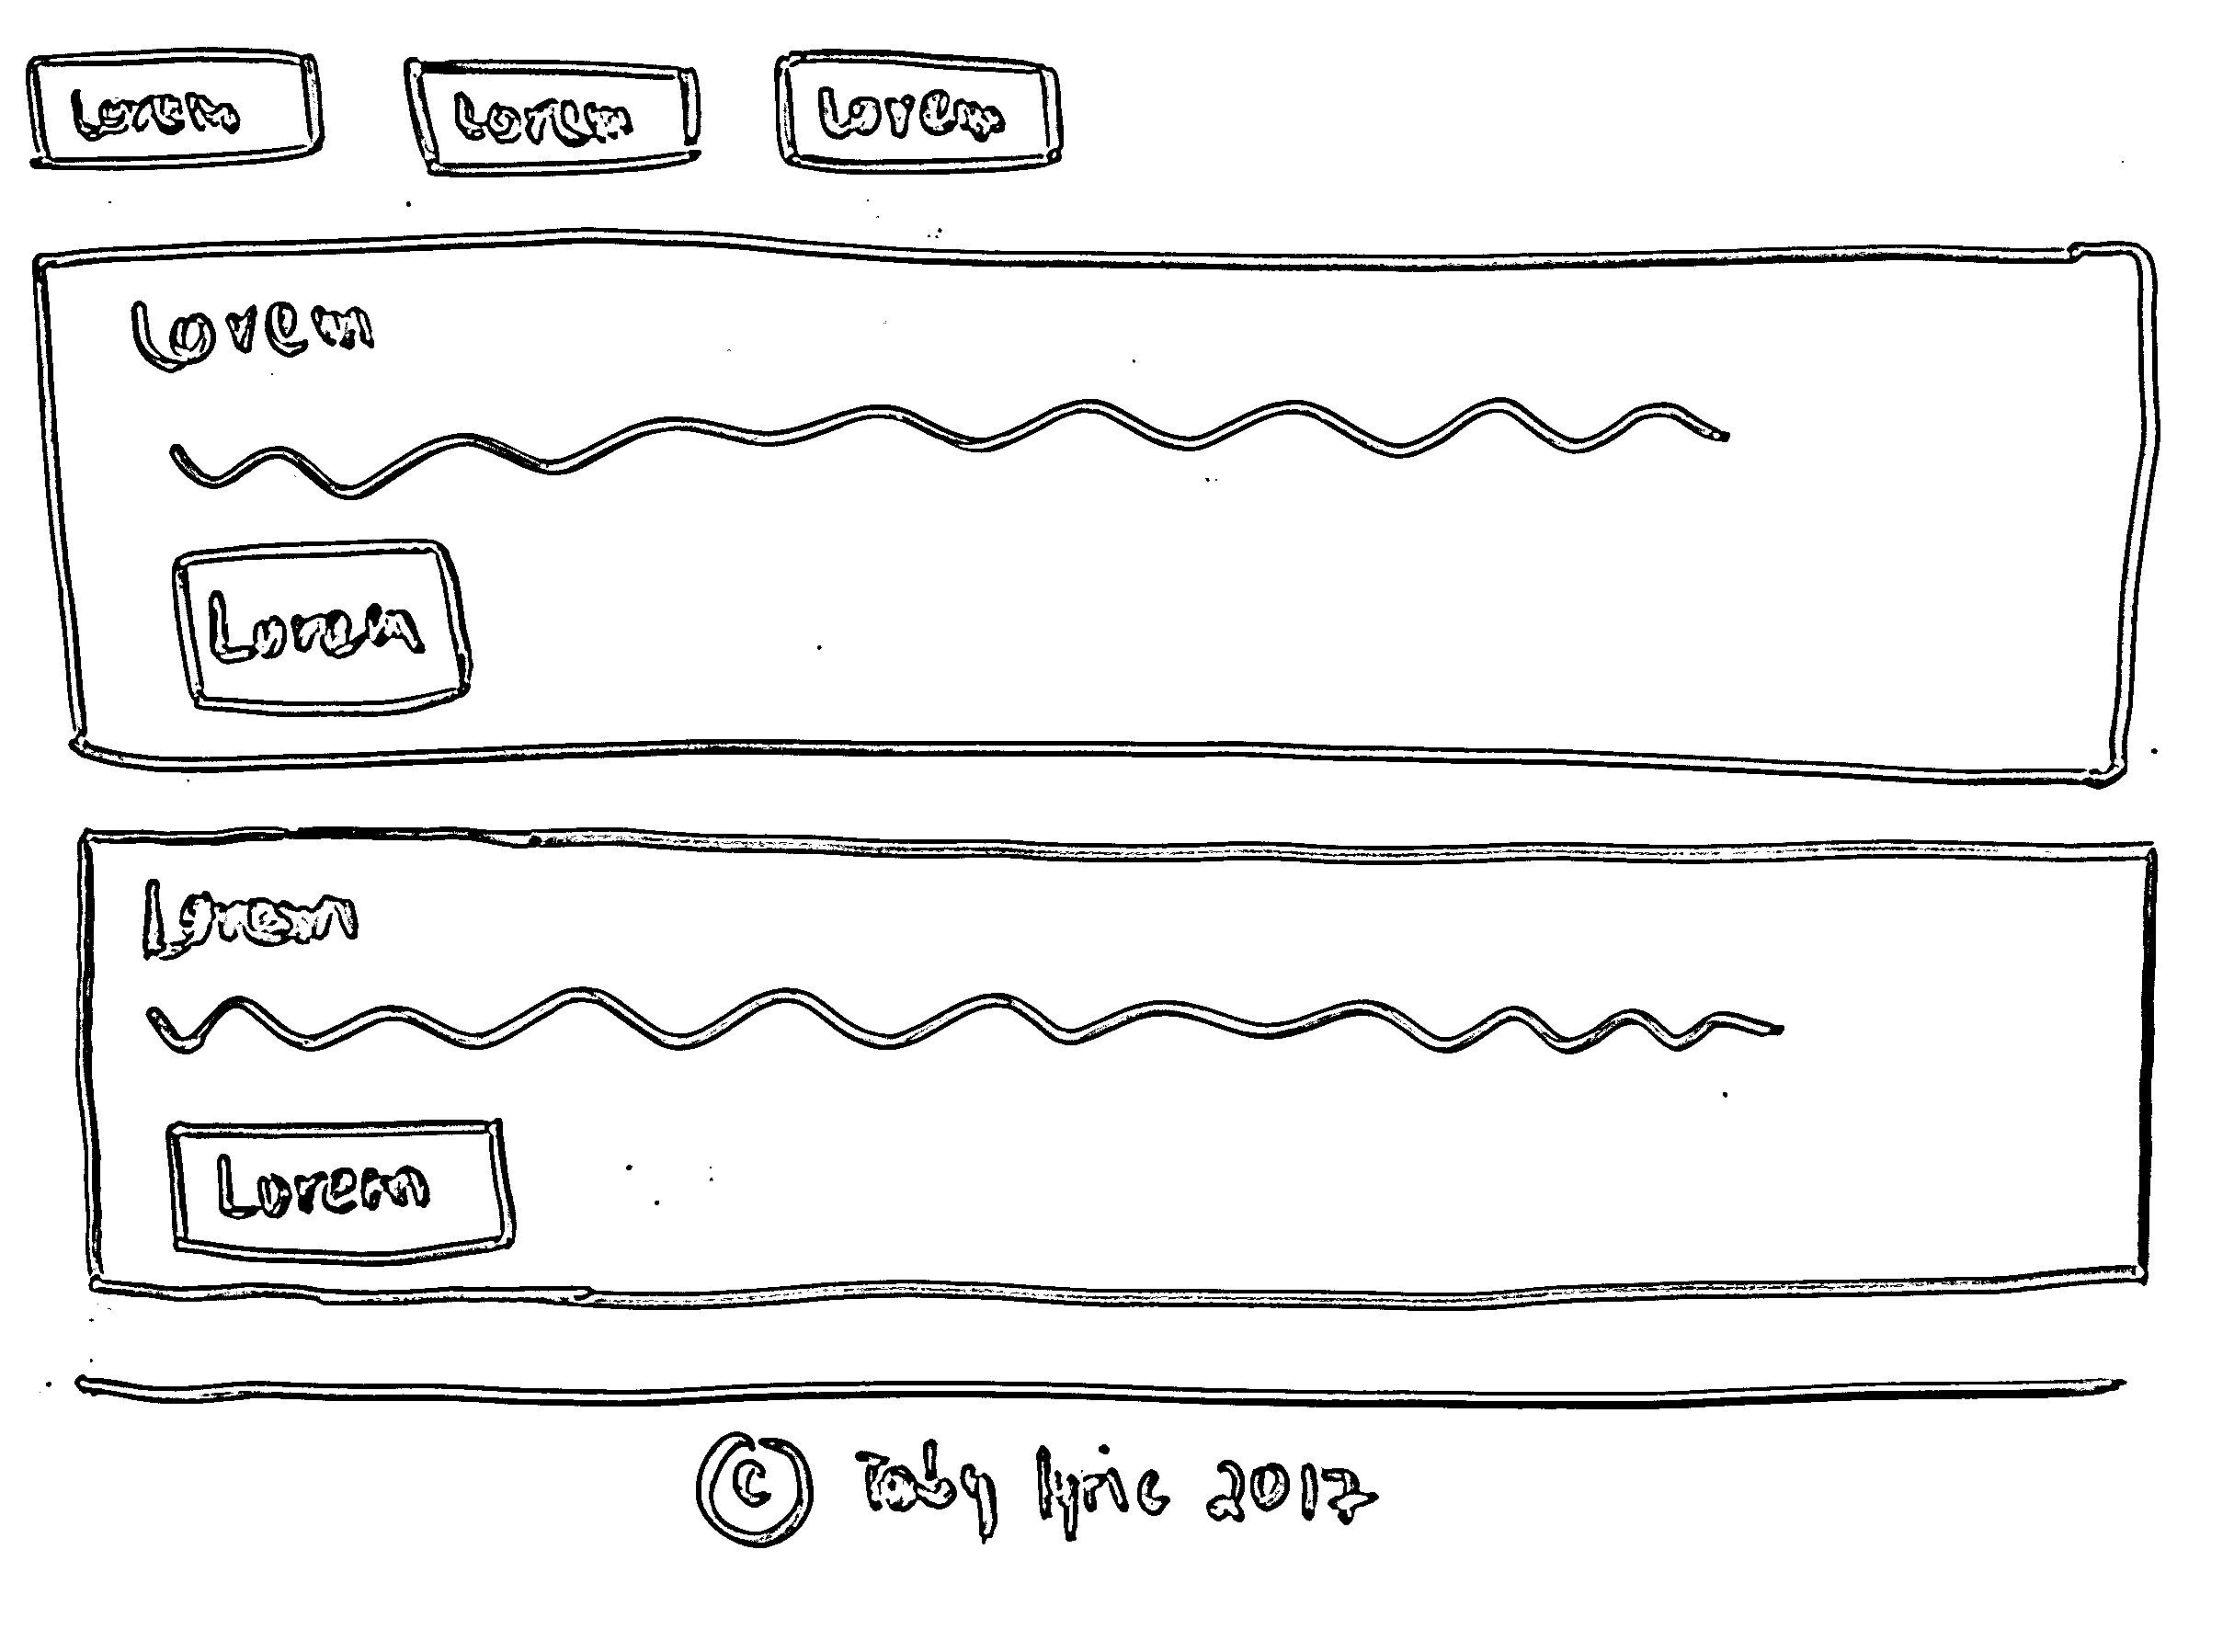 Lorem Lorem Lorem
Lorem
Lorem
Lorem
Lorem
© Toby lyric 2017